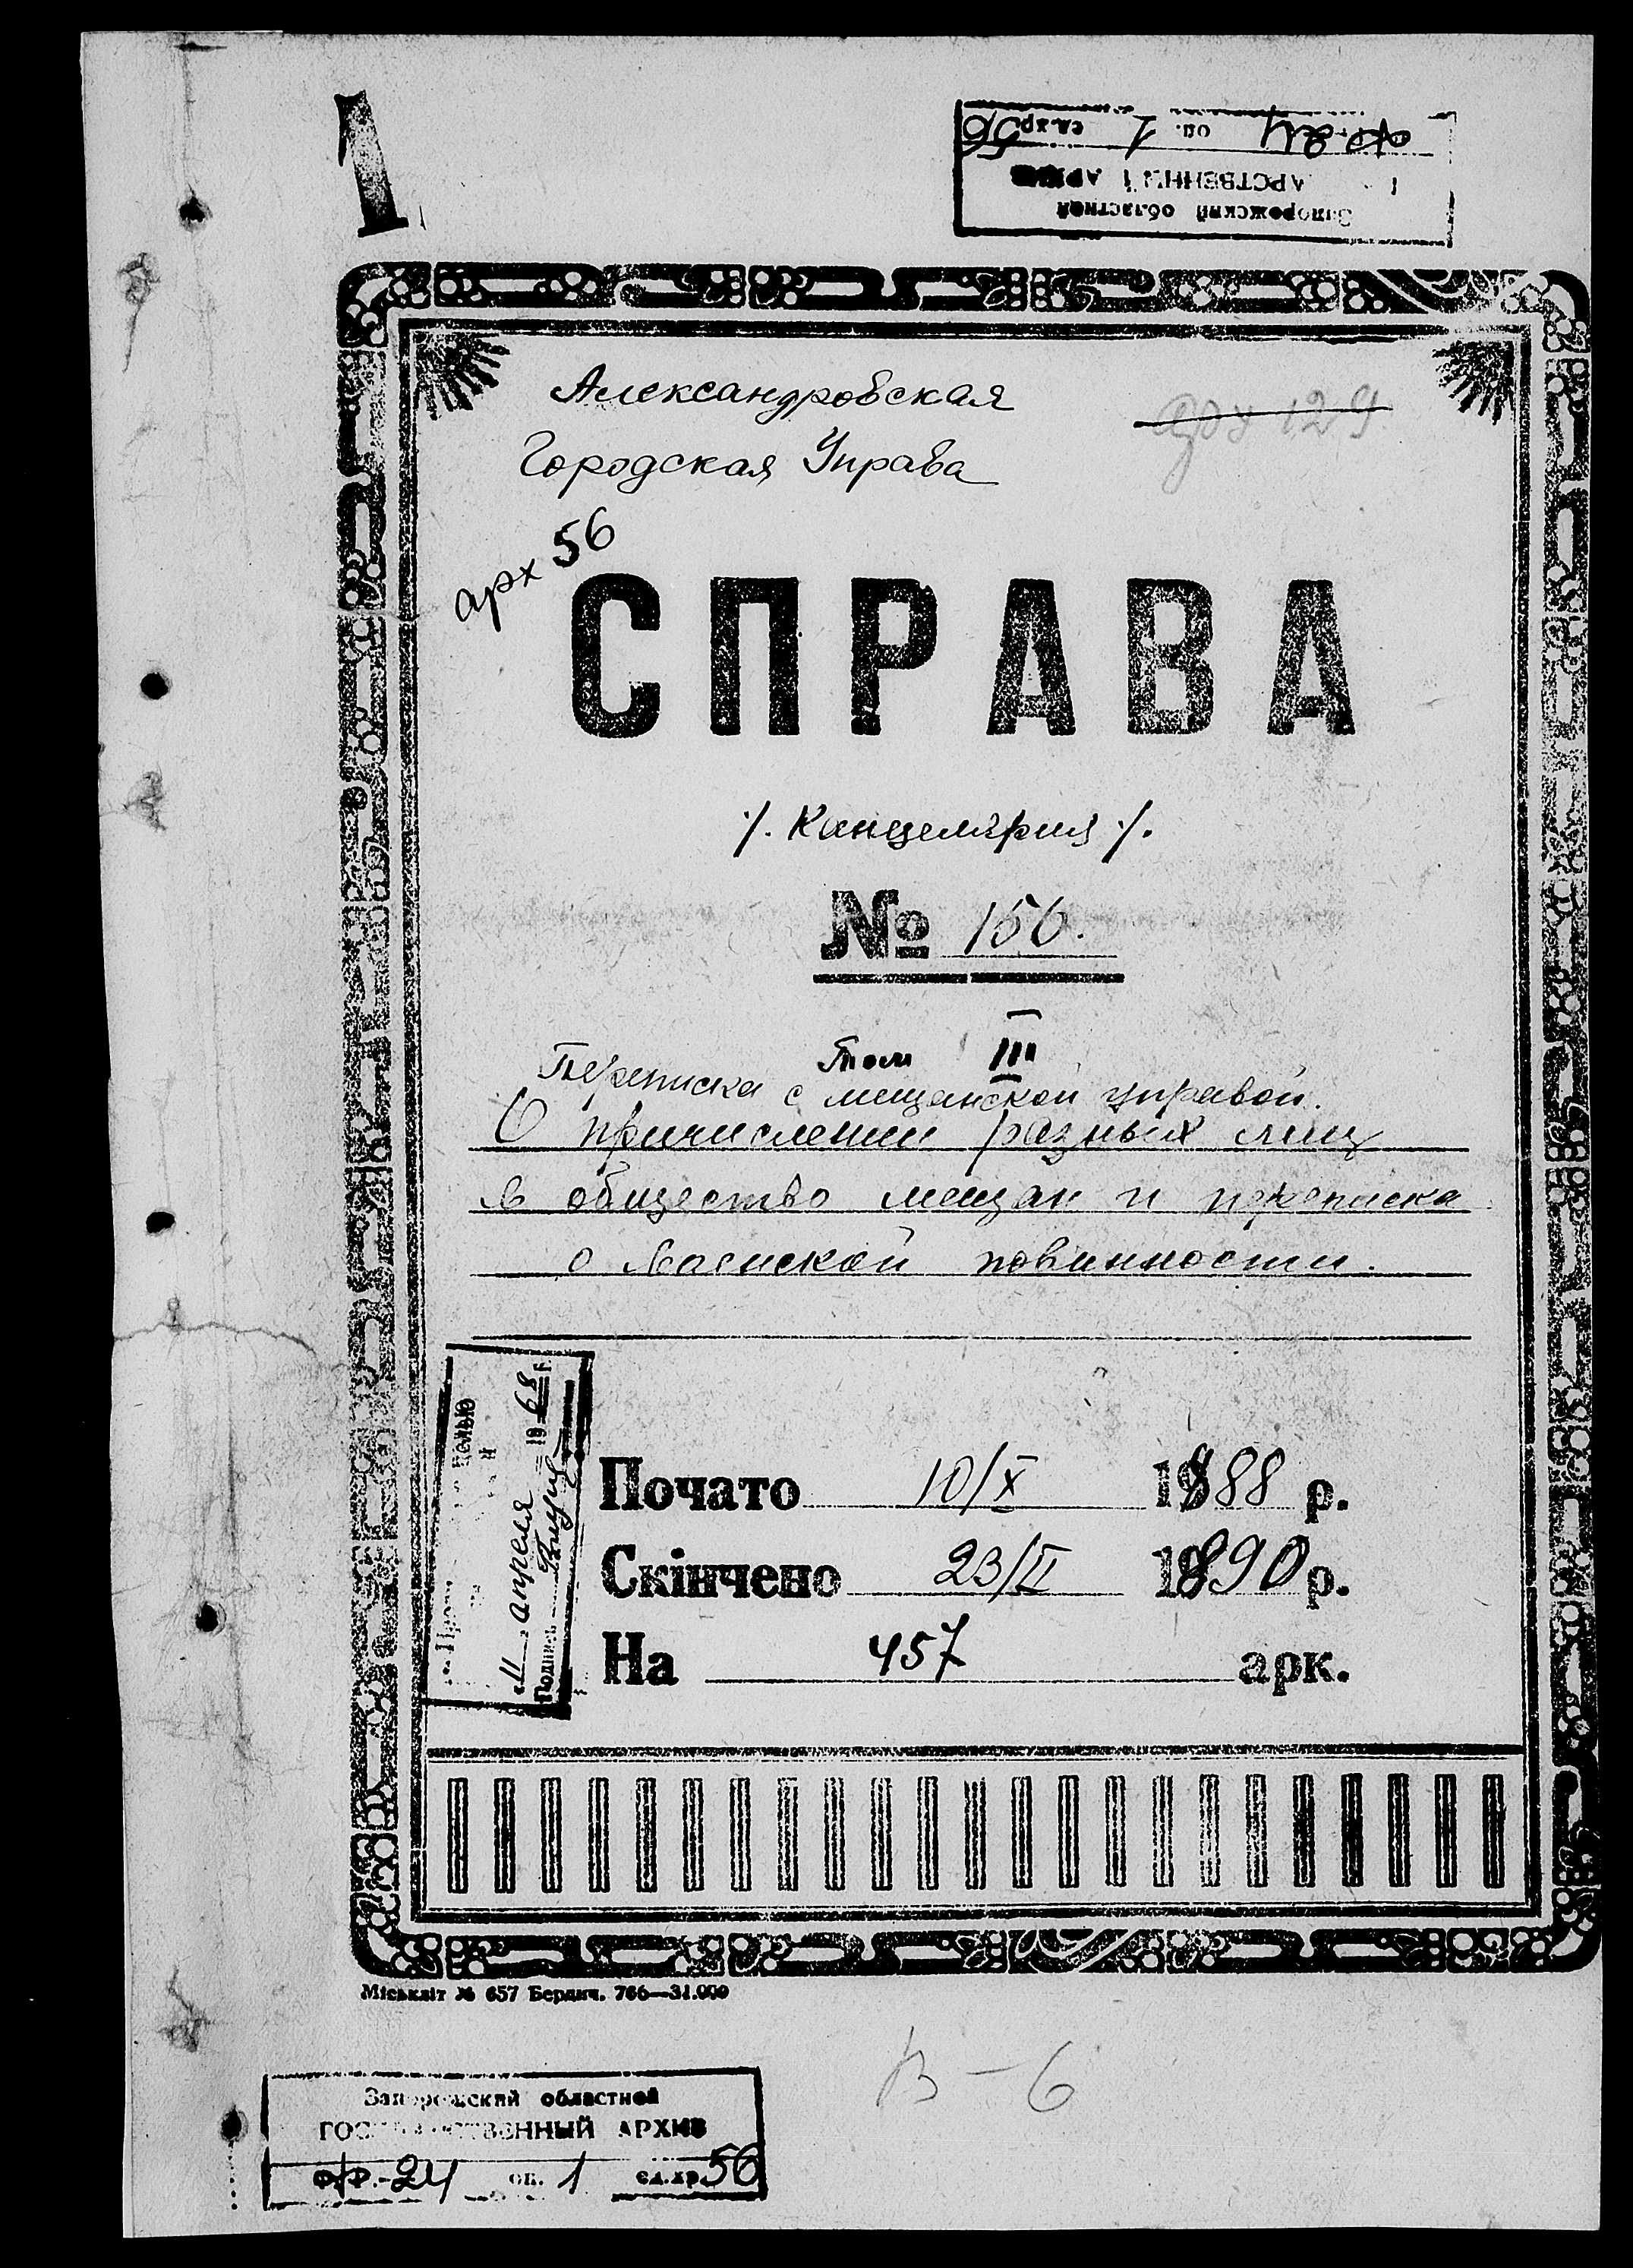 1
Запорожский областной
АРСТВЕННЫЙ АРХИВ
ф.р. 24 оп. 1 ед.хр. 56
Александровская
Городская Управа
129
арх 56
СПРАВА
·/. Канцелярия ·/.
№ 156.
Том III
Переписка с мещанской управой.
О причислении разных лиц
в общество мещан и переписка
о воинской повинности.
целью
„11 апреля 1968 г.
Подпись
Почато 10/X 1888 р.
Скінчено 23/II 1890 р.
На 457 арк.
Міськліт № 657 Бердич. 766—31.000
В-6
Запорожский областной
ГОСУДАРСТВЕННЫЙ АРХИВ
ф.р.-24 оп. 1 ед.хр. 56